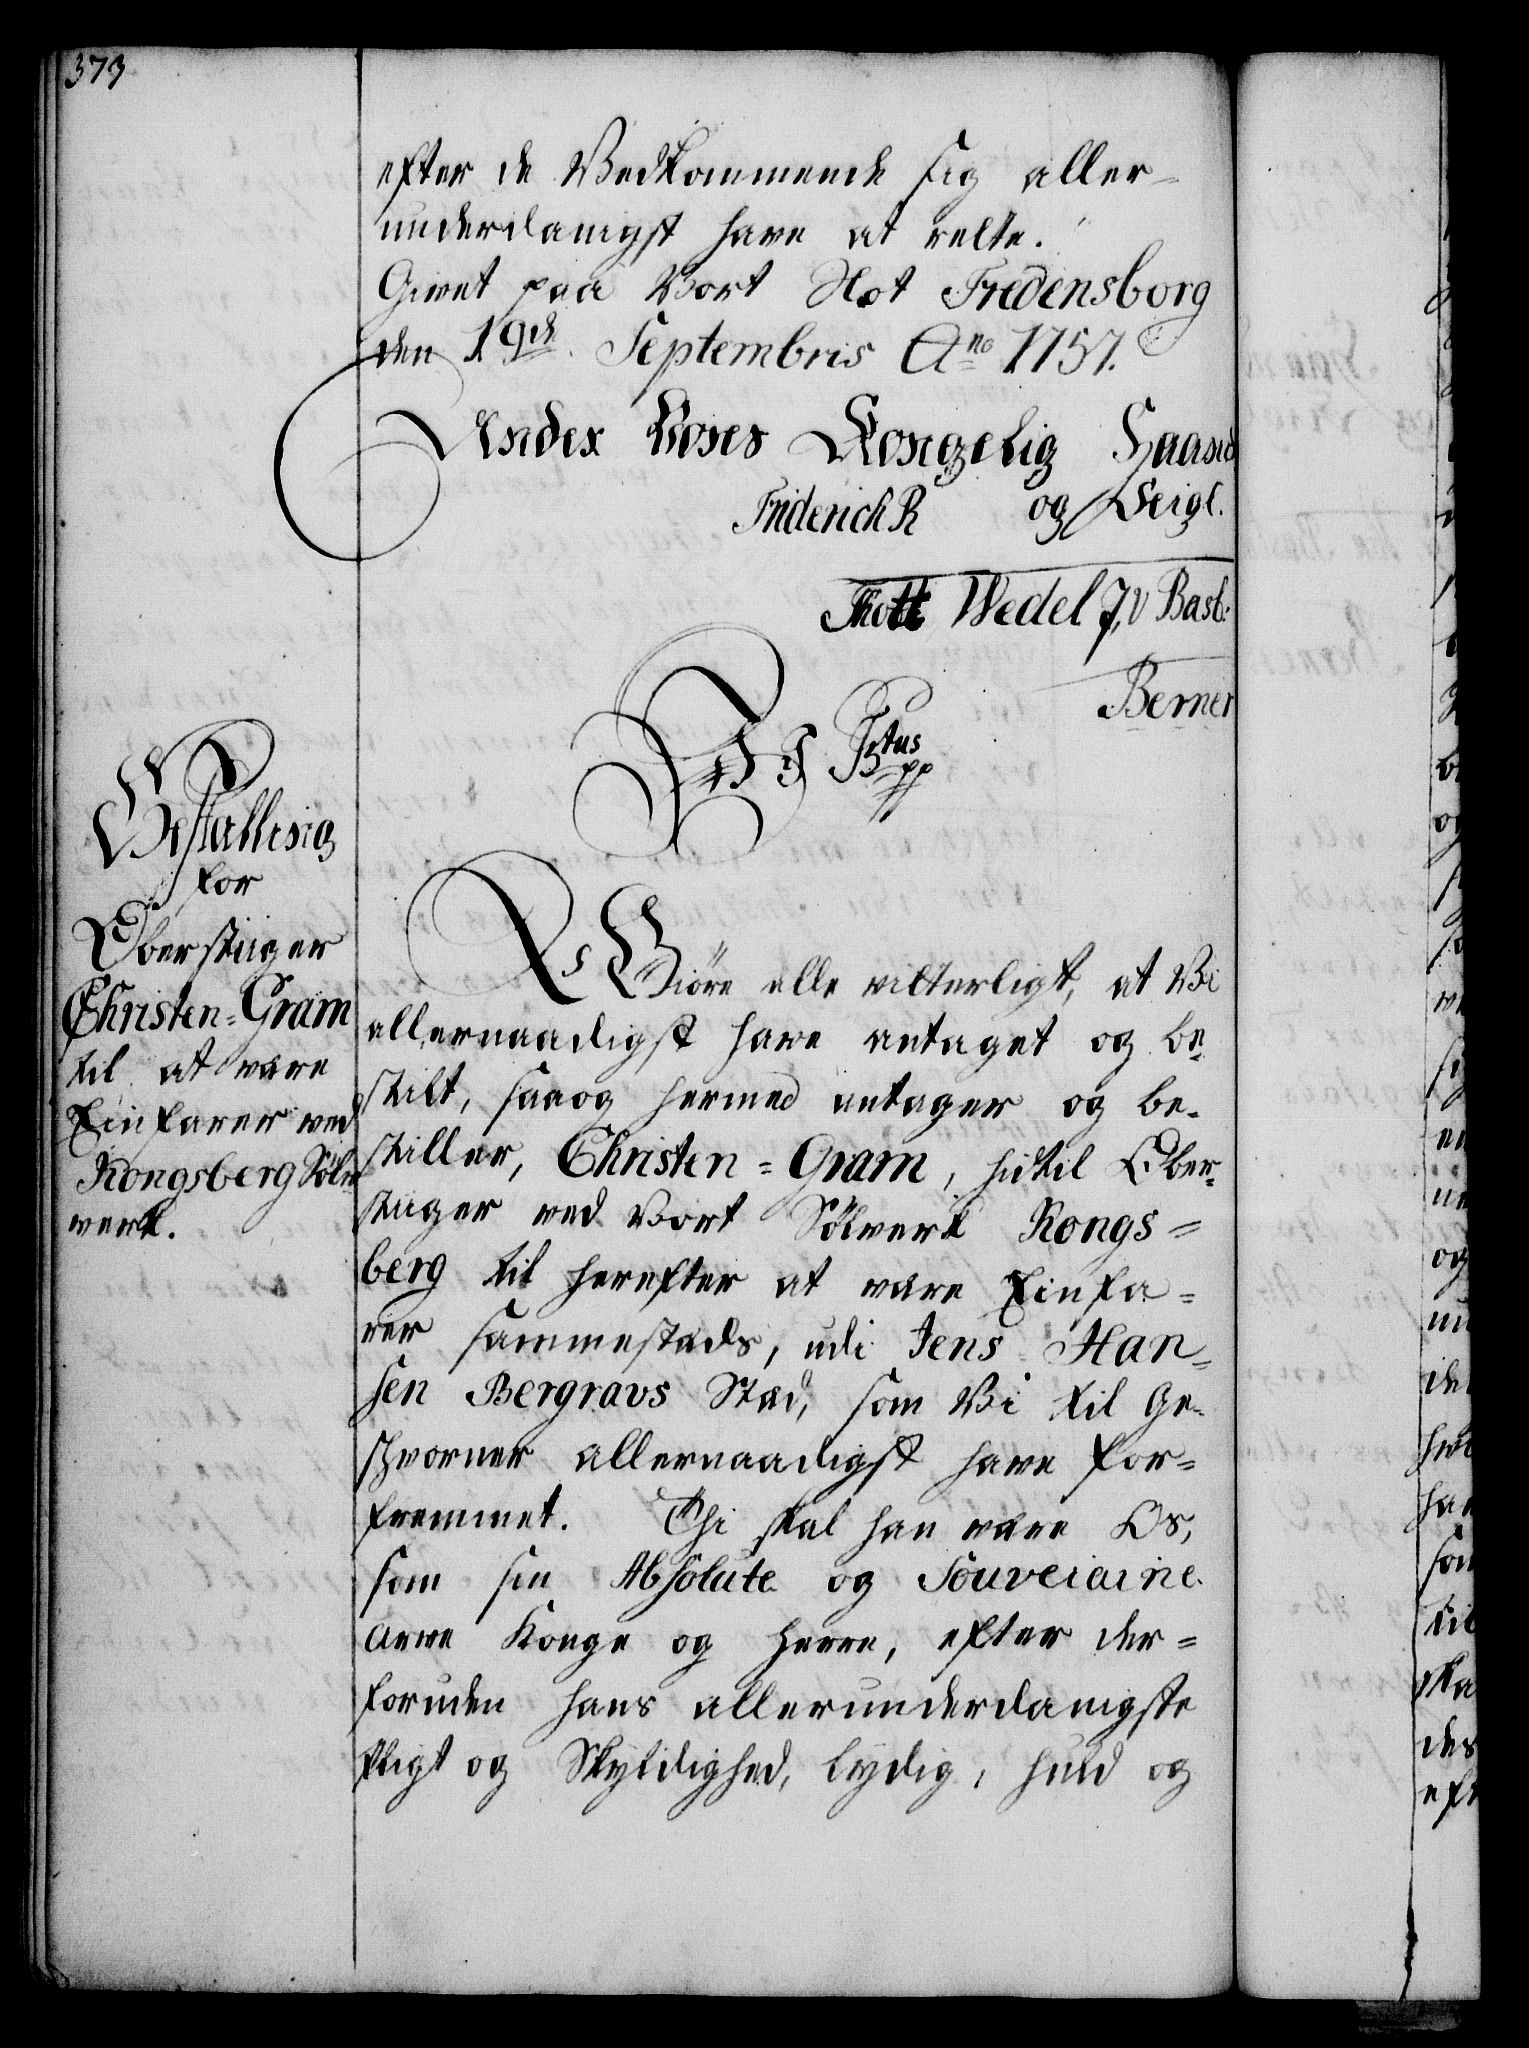 373
efter de Vedkommende sig aller-
underdanigst have at rette.
Givet paa Vort Slot Fredensborg
den 19de Septembris Ano 1757.
Under Vores Kongelig Haand
og Seigl.
Friderich R
Thott Wedel J, V Bast:
Berner
Titus
pp
Bestalling
for
Oberstiiger
Christen=Gram
til at være
Einfarer ved
Kongsberg Sølv
værk.
Giöre alle vitterligt, at Vi
allernaadigst have antaget og be-
stilt, saa og hermed antager og be-
stiller, Christen=Gram, hidtil Ober-
stiger ved Vort Sølverk Kongs=
berg til herefter at være Einfa=
rer sammestæds, udi Jens Han-
sen Bergravs Stæd, som Vi til Ge-
schvorner allernaadigst have for=
fremmet. Thi skal han være Os,
som sin Absolute og Souveraine
Arve Konge og Herre, efter der=
foruden hans allerunderdanigste
Pligt og Skyldighed, lydig, huld og